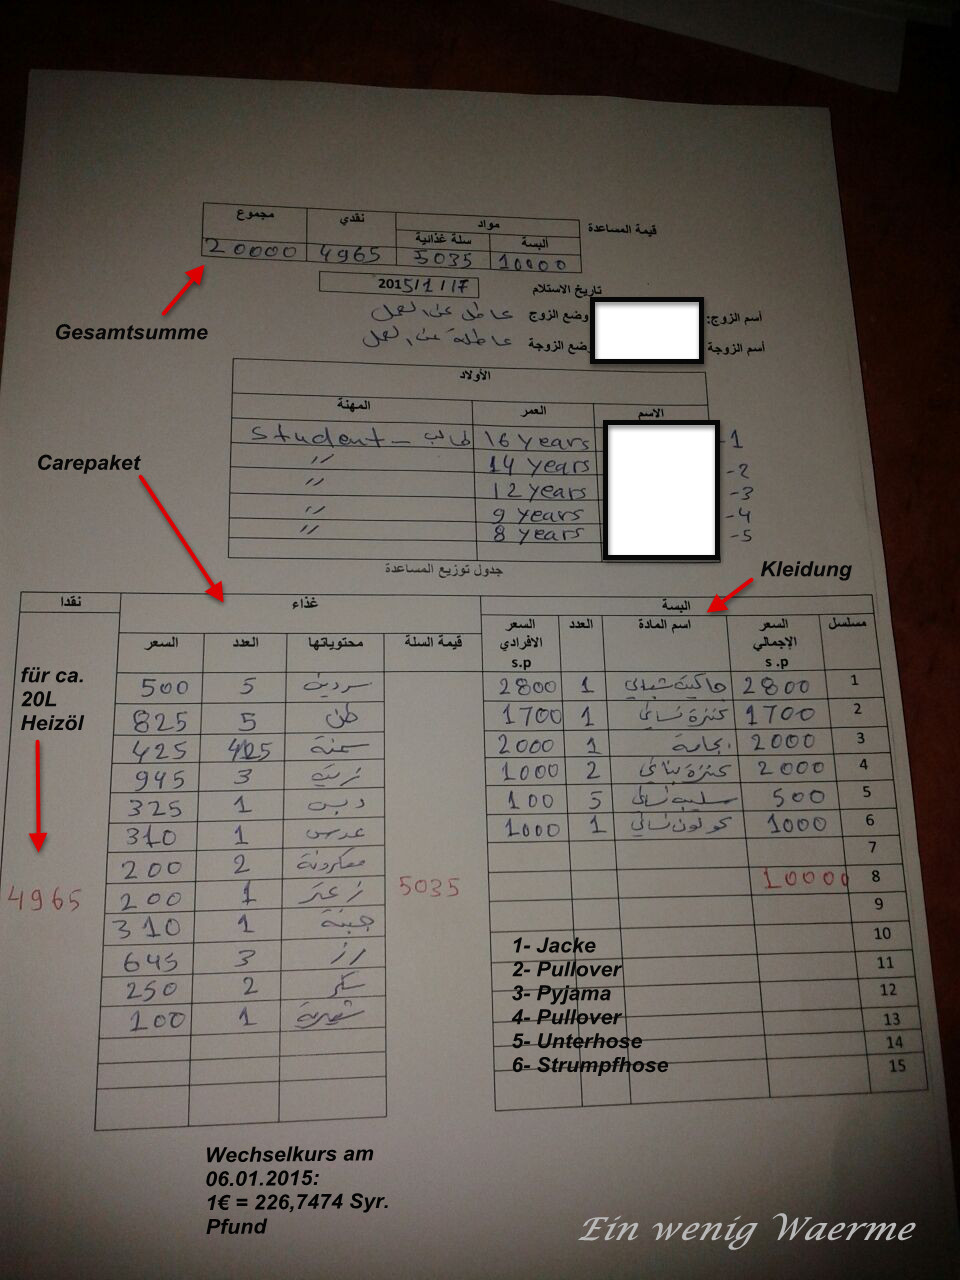 قيمة المساعدة
مواد نقدي مجموع
ألبسة سلة غذائية
10000 5035 4965 20000
Gesamtsumme
تاريخ الاستلام 2015/1/17
أسم الزوج: وضع الزوج عاطل عن العمل
أسم الزوجة وضع الزوجة عاطلة عن العمل
الأولاد
الاسم العمر المهنة
1- 16 years طالب - student
2- 14 years "
3- 12 years "
4- 9 years "
5- 8 years "
Carepaket
جدول توزيع المساعدة
Kleidung
البسة غذاء نقدا
مسلسل السعر الإجمالي s.p اسم المادة العدد السعر الافرادي s.p قيمة السلة محتوياتها العدد السعر
für ca.
20L
Heizöl
1 2800 جاكيت شبابي 1 2800 سردين 5 500
2 1700 كنزة نسائي 1 1700 طن 5 825
3 2000 بجامة 1 2000 سمنة 425 425
4 2000 كنزة بناتي 2 1000 زيت 3 945
5 500 سليب نسائي 5 100 دبس 1 325
6 1000 كولون نسائي 1 1000 عدس 1 310
7 معكرونة 2 200
8 10000 5035 زعتر 1 200 4965
9 جبنة 1 310
10 رز 3 645
11 سكر 2 250
12 شعيرية 1 100
13
14
15
1- Jacke
2- Pullover
3- Pyjama
4- Pullover
5- Unterhose
6- Strumpfhose
Wechselkurs am
06.01.2015:
1€ = 226,7474 Syr.
Pfund
Ein wenig Waerme